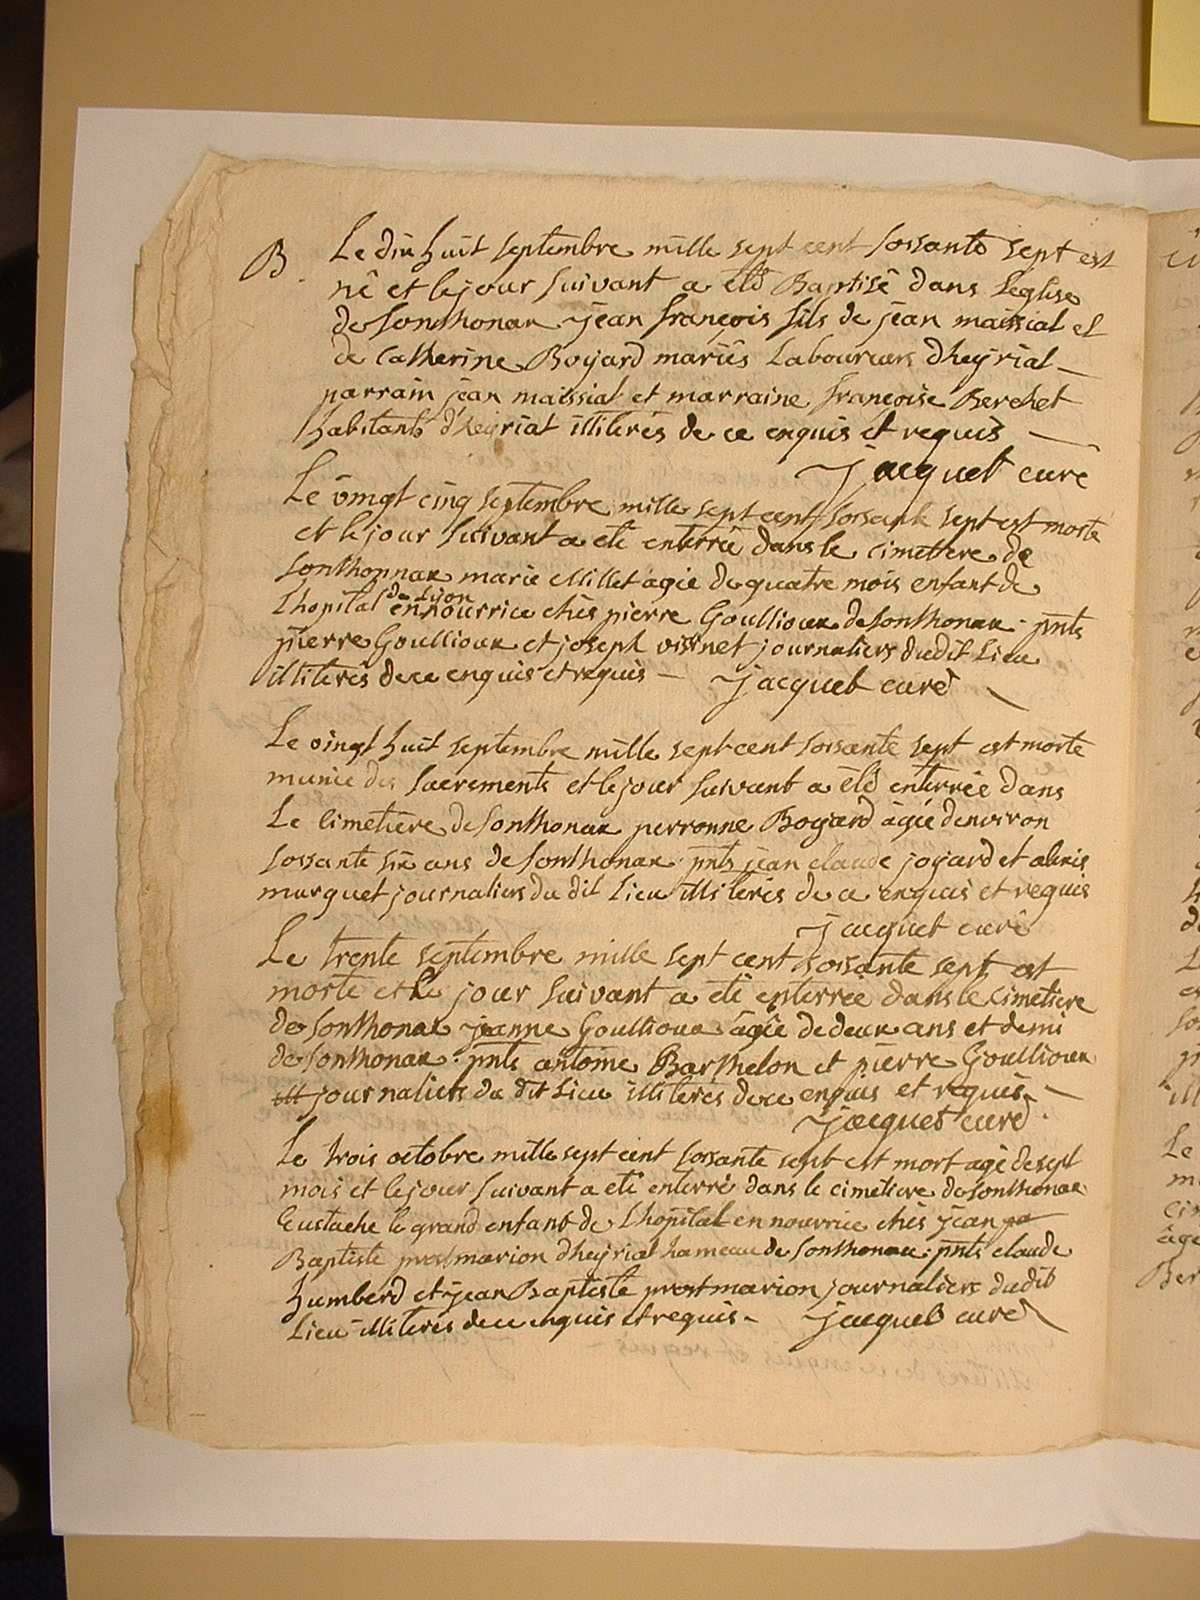 B. Le dix huit septembre mille sept cent soissante sept est
né et le jour suivant a été Baptisé dans Léglise
de Sonthonax jean françois fils de jean maissiat et
de Catherine Boyard mariés Laboureurs dheyriat
parrain jean maissiat et marraine françoise Berchet
habitants d'heyriat illiterés de ce enquis et requis
Jacquet curé
Le vingt cinq septembre mille sept cent soissante sept est morte
et le jour suivant a eté enterrée dans le cimetiere de
Sonthonnax marie Millet agée de quatre mois enfant de
Lhopital de Lyon en nourrice chés pierre Goullioux de Sonthonax. pnts
pierre Goullioux et joseph vissnet journaliers dudit Lieu
illiterés de ce enquis et requis - Jacquet curé
Le vingt huit septembre mille sept cent soissante sept est morte
munie des sacrements et le jour suivant a été enterrée dans
Le Cimetière de Sonthonax perronne Bogard agée denviron
soissante six ans de Sonthonax. pnts jean claude joyard et alexis
marguet journaliers du dit Lieu illiterés de ce enquis et requis
Jacquet curé
Le trente septembre mille sept cent soissante sept est
morte et le jour suivant a eté enterrée dans le cimetiere
de Sonthonax jeanne Goullioux agée de deux ans et demi
de Sonthonax. pnts antoine Barthelon et pierre Goullioux
ill journaliers du dit Lieu illiterés de ce enquis et requis -
Jacquet curé.
Le trois octobre mille sept cent soissante sept est mort agé de sept
mois et le jour suivant a eté enterré dans le cimetiere de Sonthonax
Eustache le grand enfant de Lhopital en nourrice chés jean pa
Baptiste prost marion dheyriat hameau de Sonthonax. pnts claude
humberd et jean Baptiste prost marion journaliers dudit
Lieu illiterés de ce enquis et requis - Jacquet curé